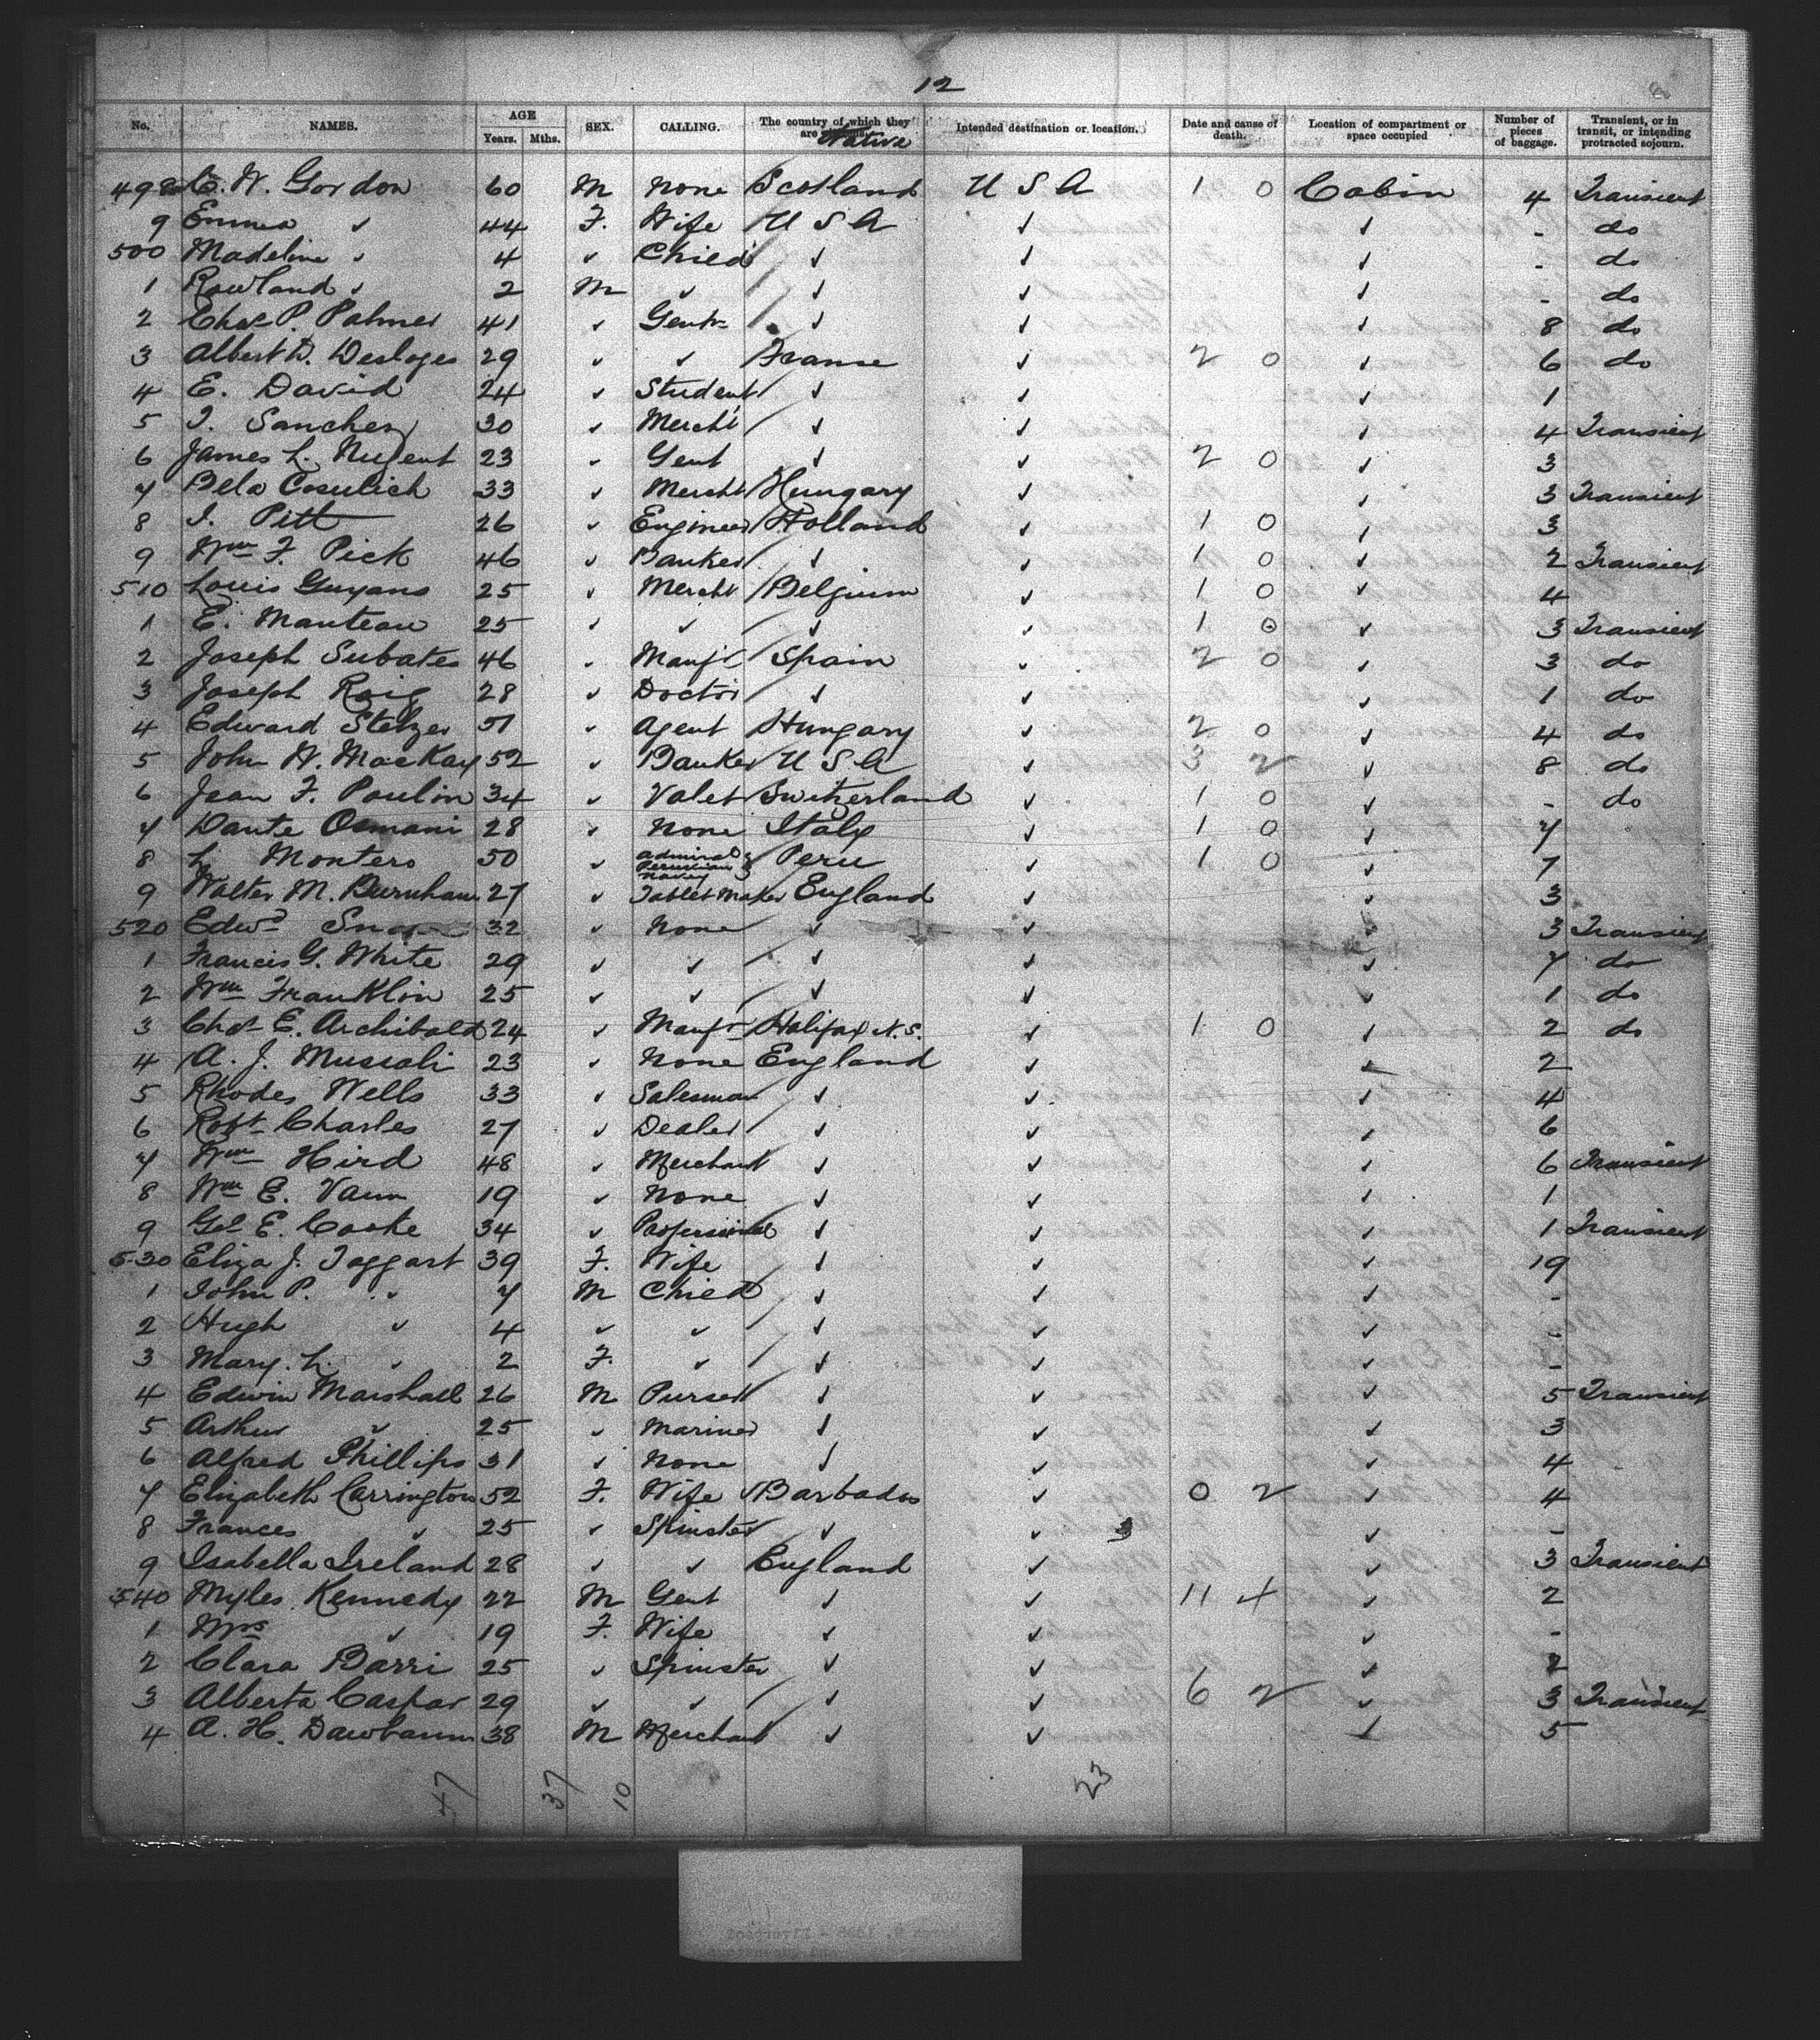 12
No. NAMES. AGE Years. Mths. SEX. CALLING. The country of which they are Native Intended destination or location. Date and cause of death. Location of compartment or space occupied Number of pieces of baggage. Transient, or in transit, or intending protracted sojourn.
498 C. W. Gordon 60 M None Scotland U S A 1 0 Cabin 4 Transient
9 Emma ✓ 44 F. Wife U S A ✓ ✓ - do
500 Madeline ✓ 4 ✓ Child ✓ ✓ ✓ - do
1 Rowland ✓ 2 M ✓ ✓ ✓ ✓ - do
2 Chas P. Palmer 41 ✓ Gentn ✓ ✓ ✓ 8 do
3 Albert D. Desloges 29 ✓ ✓ France ✓ 2 0 ✓ 6 do
4 E. David 24 ✓ Student ✓ ✓ ✓ 1
5 J. Sanchez 30 ✓ Mercht ✓ ✓ ✓ 4 Transient
6 James L. Nugent 23 ✓ Gent ✓ ✓ 2 0 ✓ 3
7 Bela Cosulich 33 ✓ Mercht Hungary ✓ ✓ 3 Transient
8 J. Pitt 26 ✓ Engineer Holland ✓ 1 0 ✓ 3
9 Wm F. Pick 46 ✓ Banker ✓ ✓ 1 0 ✓ 2 Transient
510 Louis Guyans 25 ✓ Mercht Belgium ✓ 1 0 ✓ 4
1 E. Manteau 25 ✓ ✓ ✓ ✓ 1 0 ✓ 3 Transient
2 Joseph Subates 46 ✓ Manfr Spain ✓ 2 0 ✓ 3 do
3 Joseph Roig 28 ✓ Doctor ✓ ✓ ✓ 1 do
4 Edward Stelzer 51 ✓ Agent Hungary ✓ 2 0 ✓ 4 do
5 John W. MacKay 52 ✓ Banker U S A ✓ 3 2 ✓ 8 do
6 Jean F. Paulin 34 ✓ Valet Switzerland ✓ 1 0 ✓ - do
7 Dante Osmani 28 ✓ None Italy ✓ 1 0 ✓ 7
8 L Montero 50 ✓ Admiral Peruvian Navy Peru ✓ 1 0 ✓ 7
9 Walter M. Burnham 27 ✓ Tablet Maker England ✓ ✓ 3
520 Edwd 32 ✓ None ✓ ✓ ✓ 3 Transient
1 Francis G. White 29 ✓ ✓ ✓ ✓ ✓ 7 do
2 Wm Franklin 25 ✓ ✓ ✓ ✓ ✓ 1 do
3 Chas E. Archibald 24 ✓ Manfr Halifax N.S. ✓ 1 0 ✓ 2 do
4 A. J. Mussali 23 ✓ None England ✓ ✓ 2
5 Rhodes Wells 33 ✓ Salesman ✓ ✓ ✓ 4
6 Robt Charles 27 ✓ Dealer ✓ ✓ ✓ 6
7 Wm Hird 48 ✓ Merchant ✓ ✓ ✓ 6 Transient
8 Wm E. Vann 19 ✓ None ✓ ✓ ✓ 1
9 Geo E. Cooke 34 ✓ Professional ✓ ✓ ✓ 1 Transient
530 Eliza J. Taggart 39 F. Wife ✓ ✓ ✓ 19
1 John P. ✓ 7 M Child ✓ ✓ ✓ -
2 Hugh ✓ 4 ✓ ✓ ✓ ✓ ✓ -
3 Mary. L. ✓ 2 F. ✓ ✓ ✓ ✓ -
4 Edwin Marshall 26 M Purser ✓ ✓ ✓ 5 Transient
5 Arthur ✓ 25 ✓ Mariner ✓ ✓ ✓ 3
6 Alfred Phillips 31 ✓ None ✓ ✓ ✓ 4
7 Elizabeth Carrington 52 F. Wife Barbados ✓ 0 2 ✓ 4
8 Frances ✓ 25 ✓ Spinster ✓ ✓ 3 ✓ -
9 Isabella Ireland 28 ✓ ✓ England ✓ ✓ 3 Transient
540 Myles Kennedy 22 M Gent ✓ ✓ 11 4 ✓ 2
1 Mrs ✓ 19 F. Wife ✓ ✓ ✓ -
2 Clara Barri 25 ✓ Spinster ✓ ✓ ✓ 2
3 Alberta Caspar 29 ✓ ✓ ✓ ✓ 6 2 ✓ 3 Transient
4 A. H. Dawbarn 38 M Merchant ✓ ✓ ✓ 5
47 37 10 23